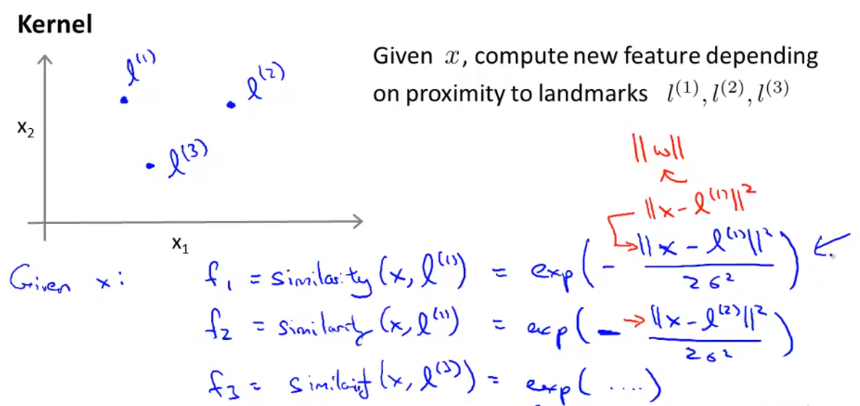 Kernel
l⁽¹⁾
l⁽²⁾
l⁽³⁾
x₂
x₁
Given x, compute new feature depending
on proximity to landmarks l⁽¹⁾, l⁽²⁾, l⁽³⁾
||w||
||x - l⁽¹⁾||²
Given x: f₁ = similarity(x, l⁽¹⁾) = exp(- ||x - l⁽¹⁾||² / 2σ²)
f₂ = similarity(x, l⁽¹⁾) = exp(- ||x - l⁽²⁾||² / 2σ²)
f₃ = similarity(x, l⁽³⁾) = exp( .... )